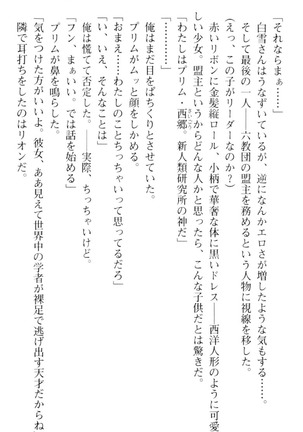 「それならまぁ……」
白雪さんはうなずいているが、逆になんかエロさが増したような気もする……。
そして最後の一人――六教団の盟主を務めるという人物に視線を移した。
(えっ、この子がリーダーなのか？)
赤いリボンに金髪縦ロール、小柄で華奢な体に黒いドレス――西洋人形のように可愛
らしい少女。盟主というからどんな人かと思ったら、こんな子供だとは驚きだ。
「わたしはプリム・西郷。新人類研究所の神だ」
「…………」
俺はまだ目をぱちくりとさせていた。
プリムがムッと顔をしかめる。
「おまえ……わたしのことちっちゃいって思ってるだろ」
「い、いえ、そんなことは」
俺は慌てて否定した。――実際、ちっちゃいけど。
「フン、まぁいい。では話を始める」
プリムが鼻を鳴らした。
「気をつけた方がいいよ。彼女、ああ見えて世界中の学者が裸足で逃げ出す天才だからね」
隣で耳打ちをしたのはリオンだ。